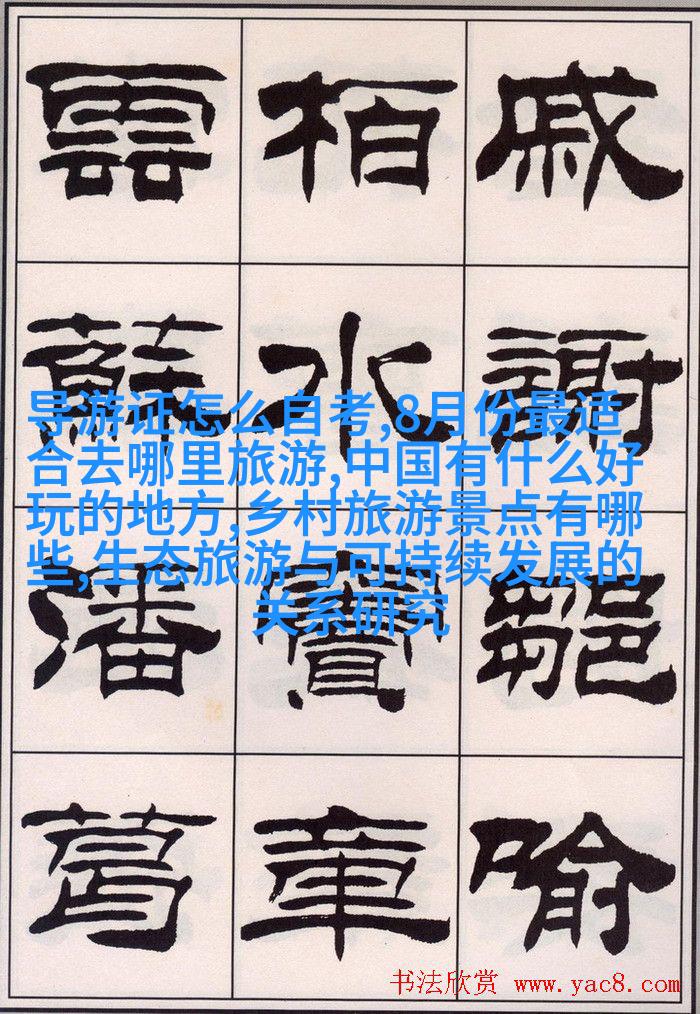 戚謝鄒喻
柏水竇章
雲蘇潘葛
导游证怎么自考,8月份最适
合去哪里旅游,中国有什么好
玩的地方,乡村旅游景点有哪
些,生态旅游与可持续发展的
关系研究
书法欣赏 www.yac8.com